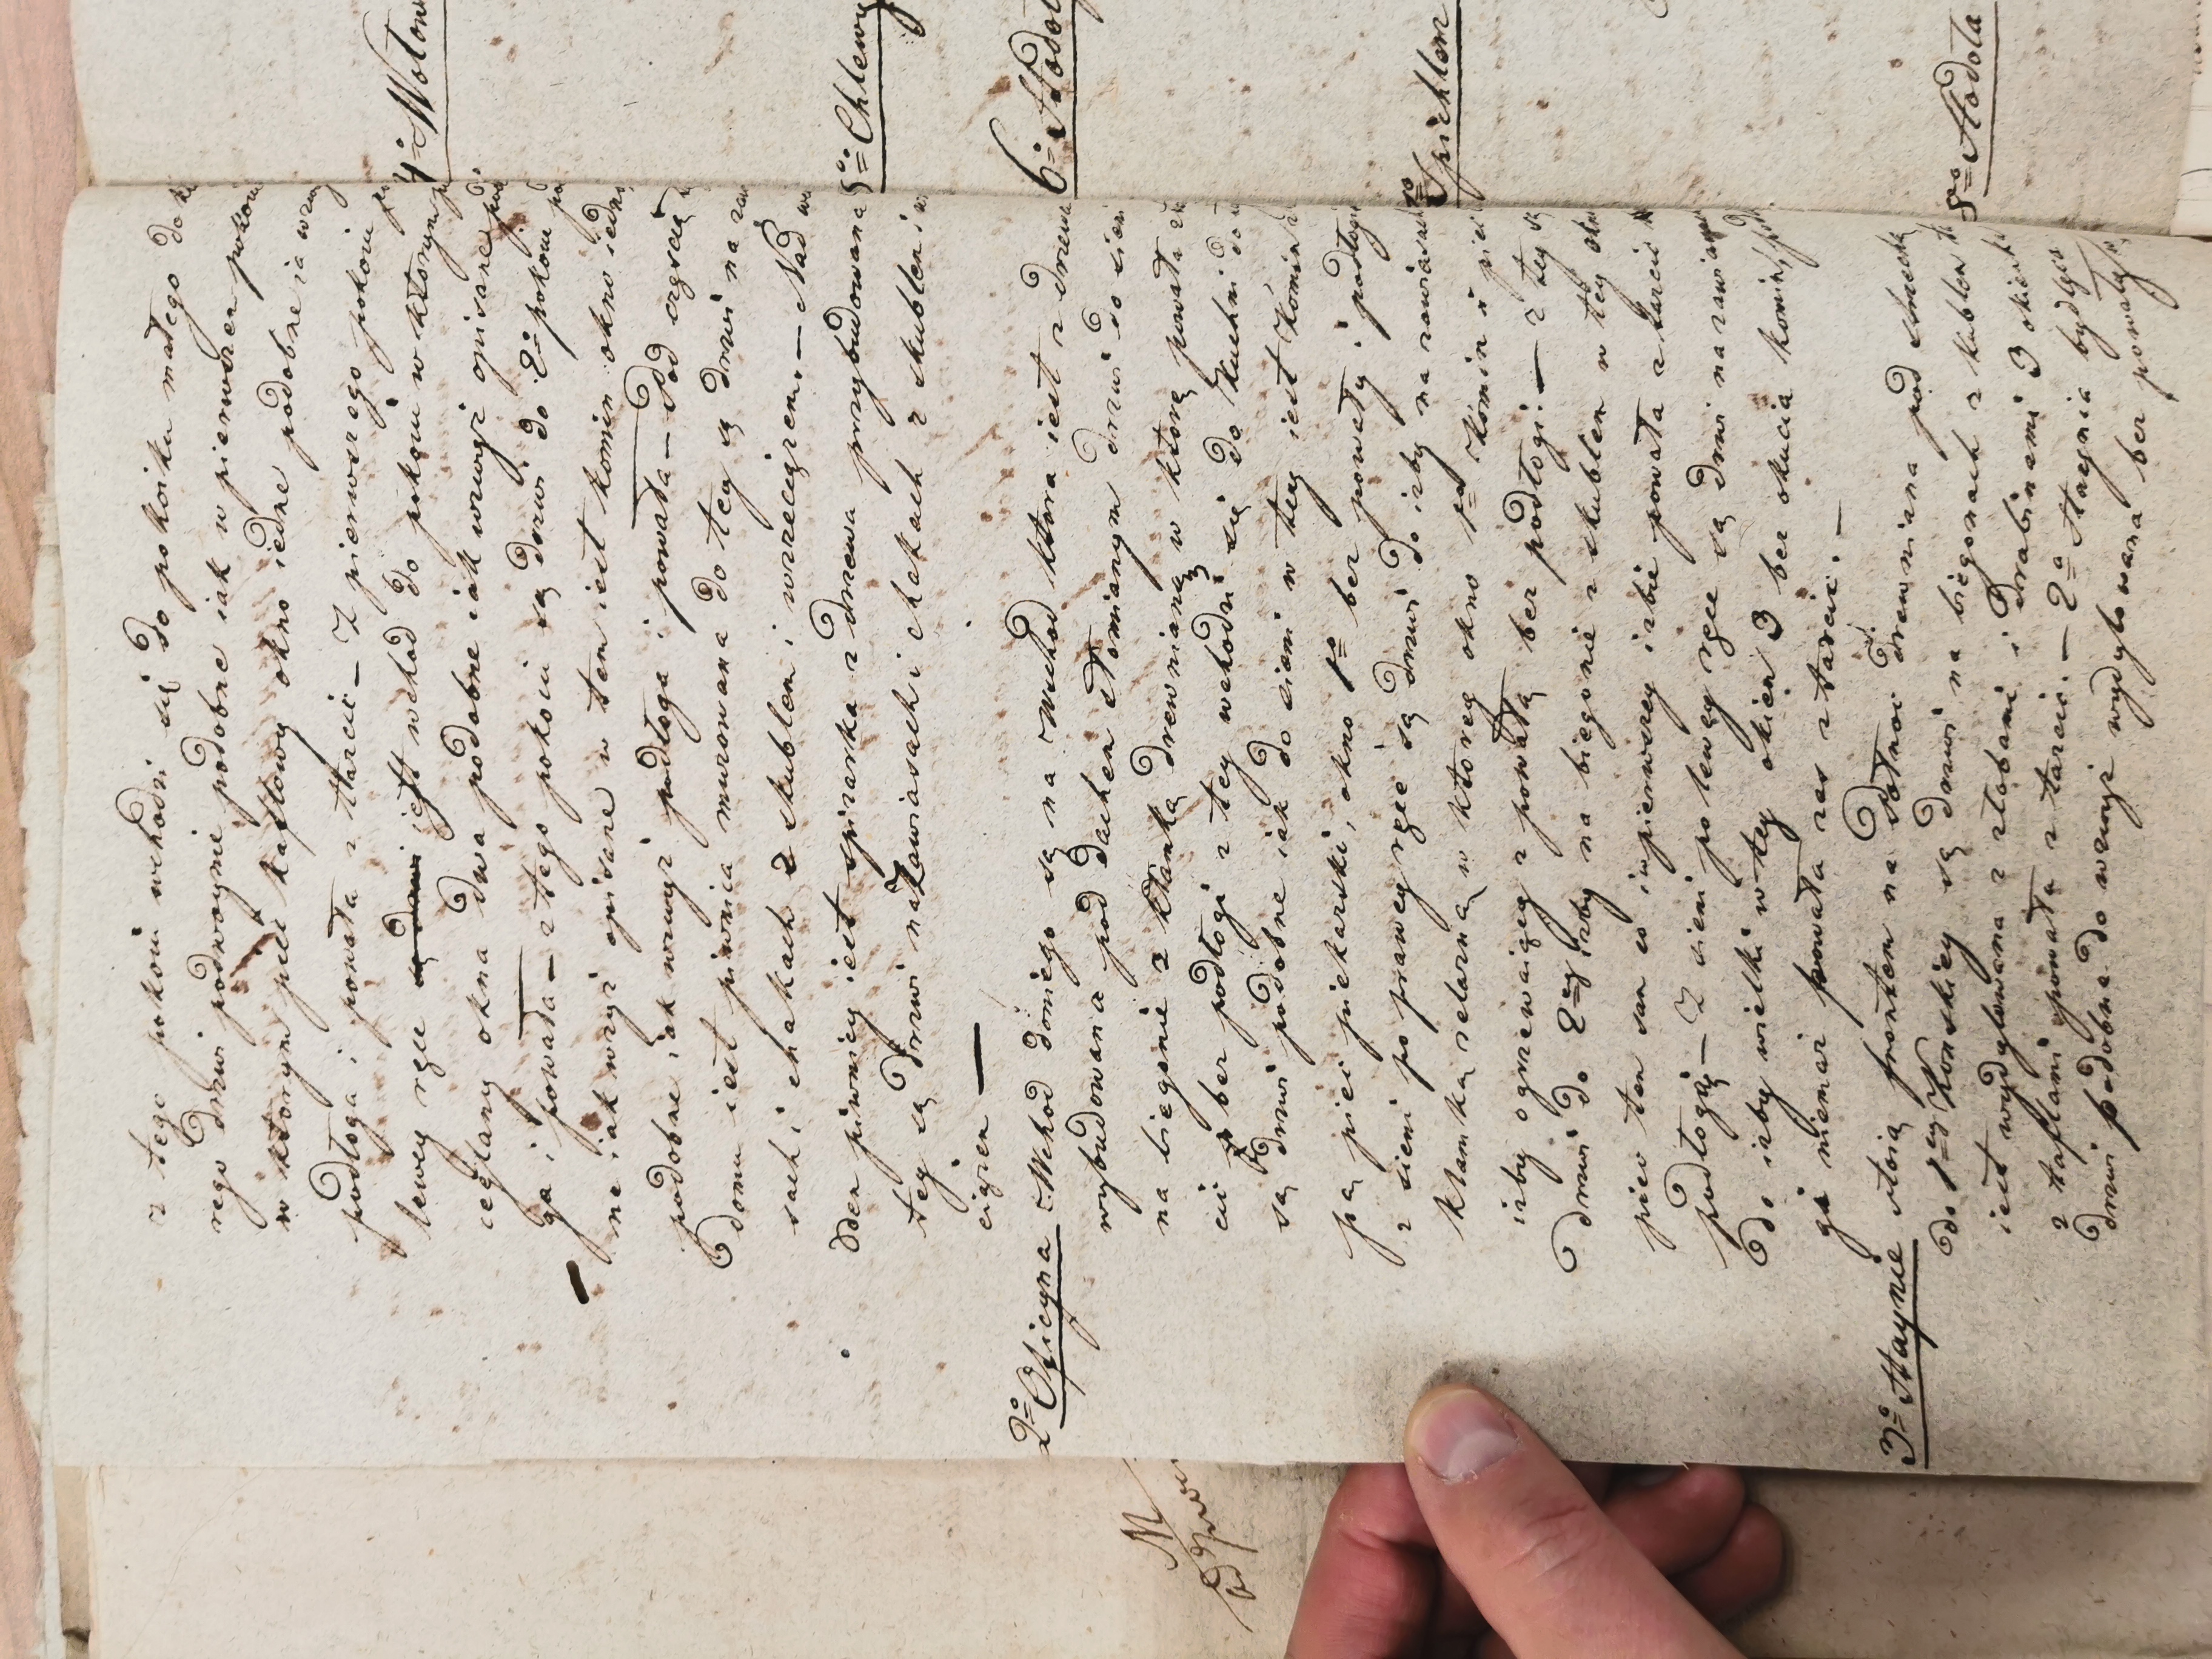 z tego pokoiu wchodzi się do pokoiku małego do
rego drzwi podwoyne podobne iak w pierwszen
w ktorym piec kaflowy okno iedne podobne ia
podłoga i powała z tharcic — Z pierwszego pokoiu
lewey ręce są drzwi iest wchod do pokoiu w ktorym
ieglany okna dwa podobne iak wzwyż opisane
ga i powała — z tego pokoiu są drzwi do 2º pokoiu
ne iak wzyż opisane w ten iest komin okno iedn
podobne iak wzwyż podłoga i powała — Pod częscią
domu iest piwnica murowana do tey są drzwi na
sach i chakach z skublem i wrzeciązem. — Nad
dzen piwnicy iest spizarka z drzewa przybudowana
tey są drzwi na Zawiasach i chakach z skublem i
ciązen —
2º Oficyna Wchod doniego są na Wschod ktora iest z drzewa
wybudowana pod dachen słomianym drzwi do sieni
na biegonie z klamką drewnianą w ktorą powała
cic bez podłogi z tey wchodzi się do kuchni do
są drzwi podobne iak do sieni w tey iest komin
pą pieci piekarski, okno 1º bez powały i podłogi
z sieni po prawey ręce są drzwi do izby na zawiasach
klamką zelazną w ktorey okno 1º Komin i piec
izby ogrzewaiący z powałą bez podłogi — z tey
drzwi do 2ey izby na biegonie z skublem w tey
piec ten san co i w pierwszey izbie powała z tarcic
podłogi — Z sieni po lewey ręce są drzwi na zawia
do izby wielki w tey okien 3 bez okucia komin
gi niemaż powała zas z tarcic. —
3º Staynie stoią frontem na Połnoc drewniana pod
do 1ey Konskiey są drzwi na biegonach z kublem
iest wydylowana z złobami i drabinami 3 okienka
z taflami powała z tarcic. — 2ª Staynia bydlęca
drzwi podobne do wzwyż wydylowana bez powały
4º Wołow
5º Chlewy
6º Stodoł
7º Spichlerz
8º Stodoła